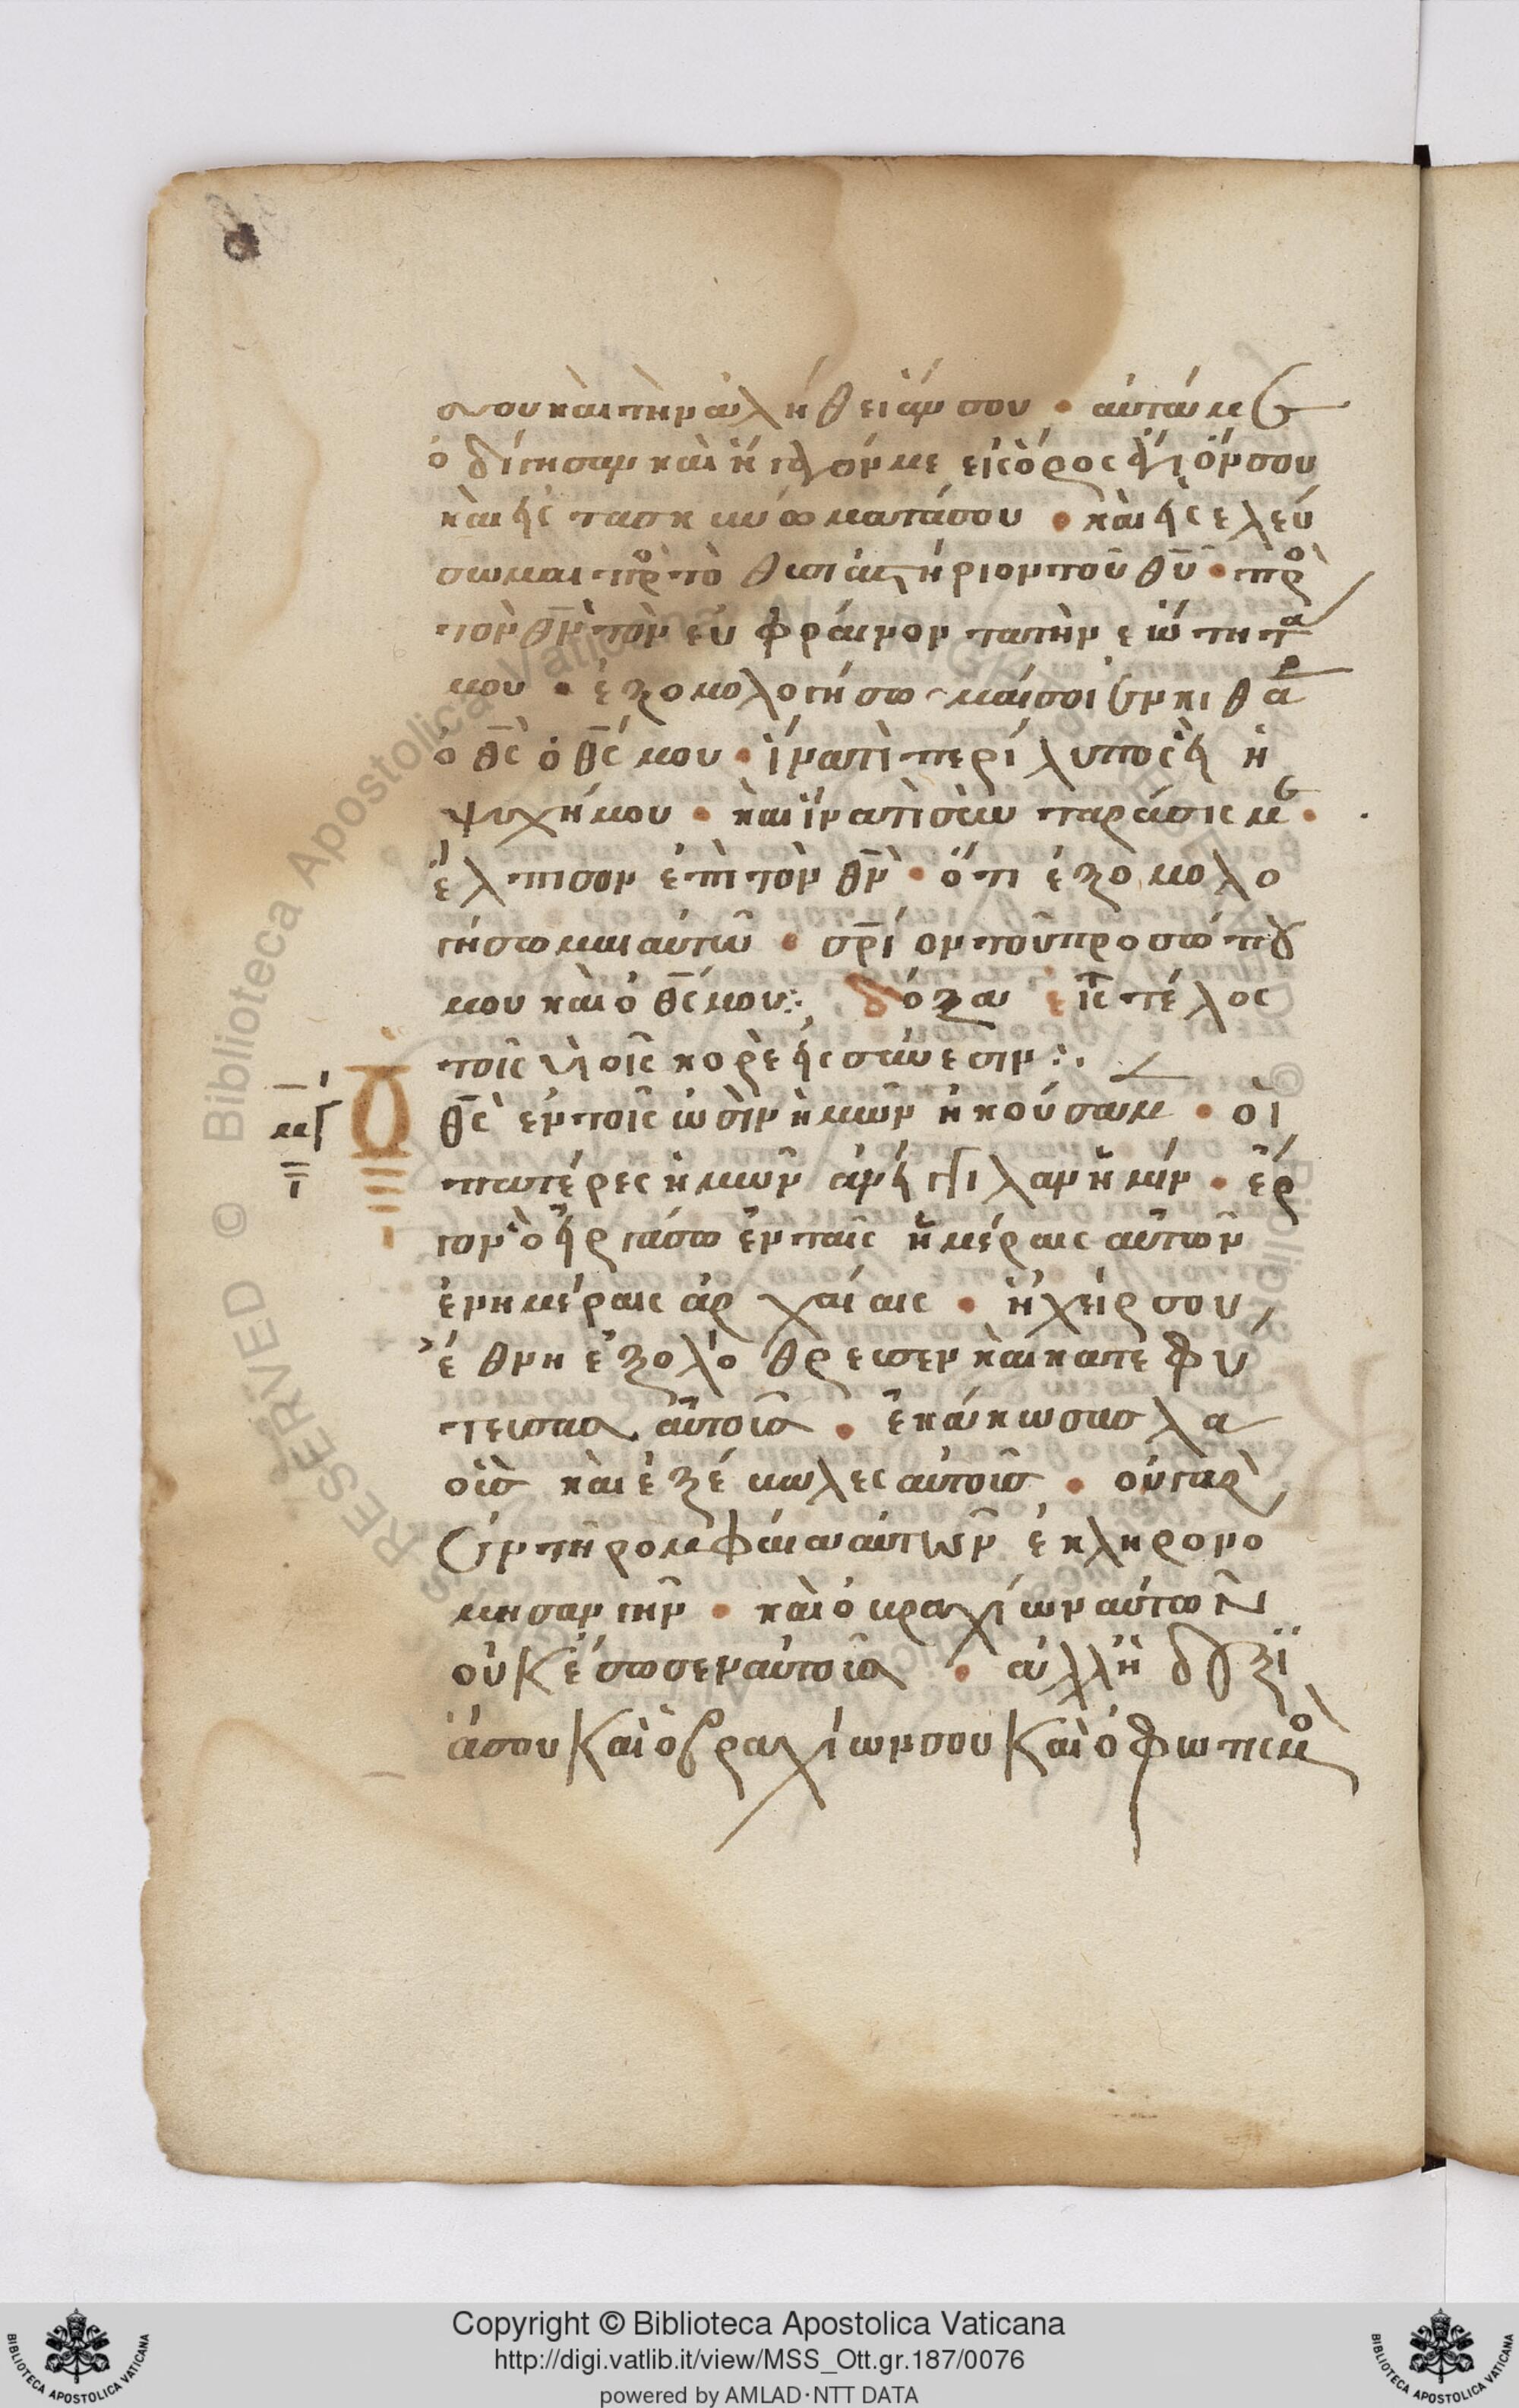 σου καὶ τὴν ἀλήθειάν σου · αὐτά με
ὁδίγησαν καὶ ἤγαγόν με εἰς ὄρος ἅγιόν σου
καὶ εἰς τα σκινώματά σου · καὶ εἰσελεύ
σωμαι πρὸ τὸ θυσιαστήριον τοῦ θυ · πρὸ
τὸν θν τὸν εὐφραίνοντα τὴν νεώτητα
μου · ἐξομολογήσωμαί σοι ἐν κιθάρ
ὁ θς ὁ θς μου · ἵνα τὶ περίλυπος εἶ ἡ
ψυχή μου · καὶ ἵνα τὶ συν ταράσις με ·
ἔλπισον ἐπὶ τὸν θν · ὅτι ἐξομολο
γήσωμαι αὐτῶ · σρίον τοῦ προσώπου
μου καὶ ὁ θς μου :, δόξα εἰς τέλος
τοῖς υἱοῖς κορὲ εἰς σύνεσιν :·
μγ
Ο
θς ἐν τοῖς ὠσὶν ἡμῶν ἠκούσαμ · οἱ
πατέρες ἡμῶν ἀνείγγιλαν ἡμίν · ἔρ
γον ὃ εἰργάσω ἐν ταῖς ἡμέραις αὐτῶν
ἐν ημέραις ἀρχαίαις · ἡ χείρ σου
ἔθνη ἐξολόθρευσεν καὶ κατεφύ
τευσας αὐτοὺς · ἐκάκωσας λα
οὺς καὶ ἐξέβαλες αὐτοὺς · οὐ γὰρ
ἐν τῆ ρομφαία αὐτῶν ἐκληρονο
μησαν γῆν · καὶ ὁ βραχίων αὐτῶν
οὐκ ἔσωσεν αὐτοὺς · ἀλλἡ δεξϊ
ά σου καὶ ὁ βραχίων σου καὶ ὁ φωτισμὸ
Copyright © Biblioteca Apostolica Vaticana
http://digi.vatlib.it/view/MSS_Ott.gr.187/0076
powered by AMLAD·NTT DATA